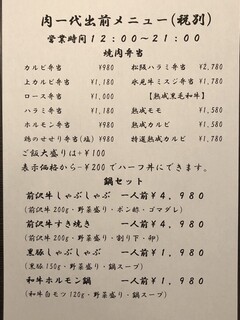 肉一代出前メニュー(税別)
営業時間12:00~21:00
焼肉弁当
カルビ弁当 ¥980
上カルビ弁当 ¥1,180
ロース弁当 ¥1,000
ハラミ弁当 ¥1,180
ホルモン弁当 ¥980
鶏のせせり弁当(塩) ¥980
松阪ハラミ弁当 ¥2,780
氷見牛ミスジ弁当 ¥1,780
【熟成黒毛和牛】
熟成モモ ¥1,580
熟成カルビ ¥1,580
特選熟成カルビ ¥1,780
ご飯大盛りは+¥100
表示価格から-¥200でハーフ丼にできます。
鍋セット
前沢牛しゃぶしゃぶ 一人前¥4,980
(前沢牛200g・野菜盛り・ポン酢・ゴマダレ)
前沢牛すき焼き 一人前¥4,980
(前沢牛200g・野菜盛り・割り下・卵)
黒豚しゃぶしゃぶ 一人前¥1,980
(黒豚150g・野菜盛り・鍋スープ)
和牛ホルモン鍋 一人前¥1,980
(和牛白モツ120g・野菜盛り・鍋スープ)